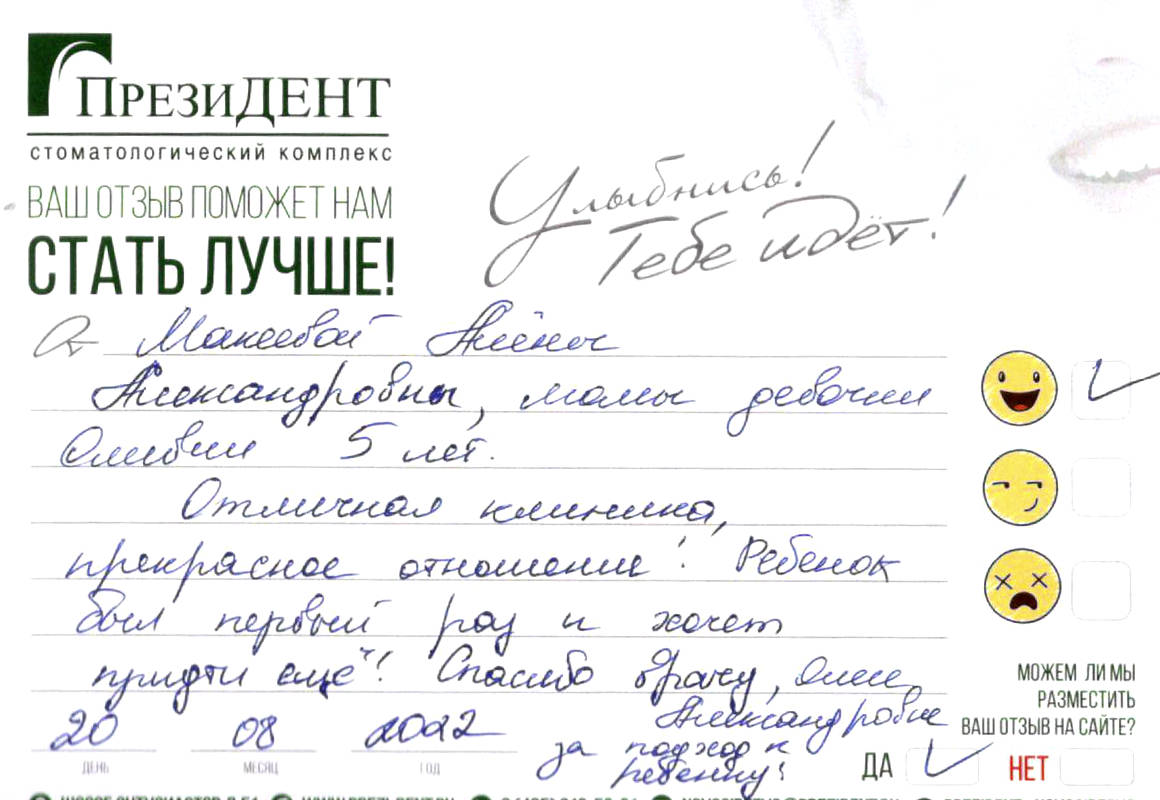 ПРЕЗИДЕНТ
СТОМАТОЛОГИЧЕСКИЙ КОМПЛЕКС
ВАШ ОТЗЫВ ПОМОЖЕТ НАМ
СТАТЬ ЛУЧШЕ!
Улыбнись!
Тебе идёт!
От Макеевой Алёны
Александровны, мамы девочки
Оливии 5 лет.
Отличная клиника,
прекрасное отношение! Ребенок
был первый раз и хочет
придти ещё! Спасибо врачу,
Александровне
за подход к
ребенку!
20 08 2022
ДЕНЬ МЕСЯЦ ГОД
МОЖЕМ ЛИ МЫ
РАЗМЕСТИТЬ
ВАШ ОТЗЫВ НА САЙТЕ?
ДА НЕТ